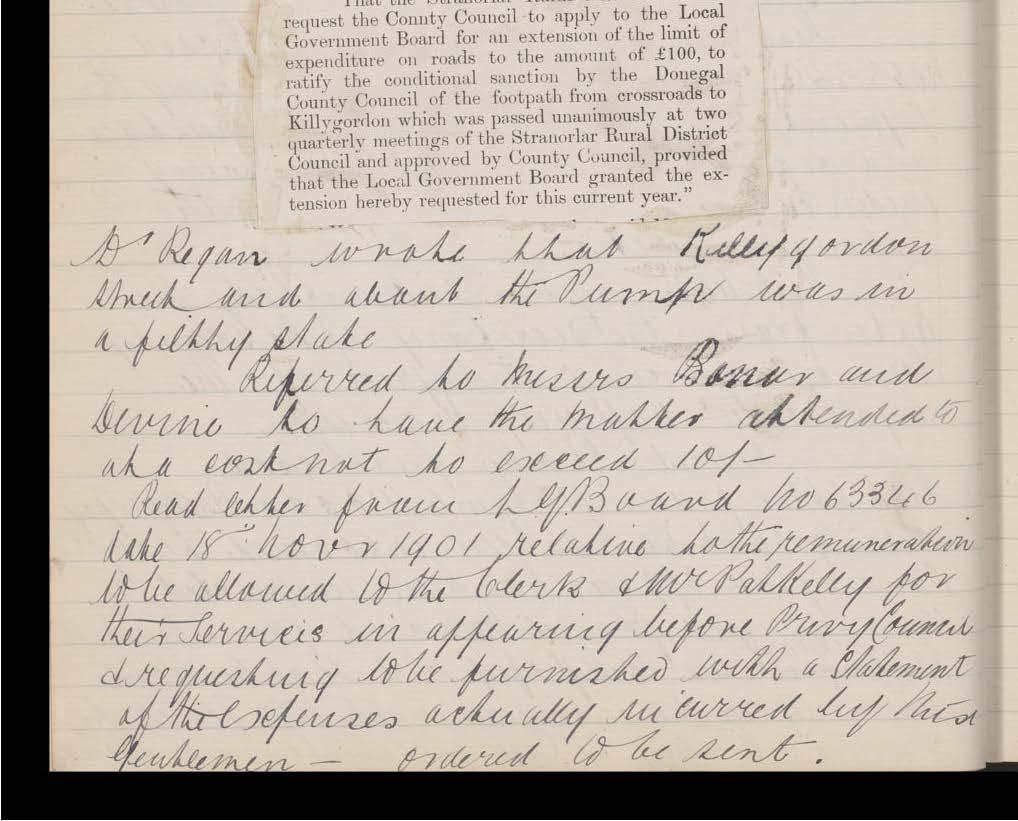 That the Stranorlar Rural
request the County Council to apply to the Local
Government Board for an extension of the limit of
expenditure on roads to the amount of £100, to
ratify the conditional sanction by the Donegal
County Council of the footpath from crossroads to
Killygordon which was passed unanimously at two
quarterly meetings of the Stranorlar Rural District
Council and approved by County Council, provided
that the Local Government Board granted the ex-
tension hereby requested for this current year."
Dr Regan wrote that Killygordon
street and about the Pump was in
a filthy state
Referred to Messrs Bonar and
Devine to have the matter attended to
at a cost not to exceed 10/-
Read letter from L G Board No 63346
date 18th Novr 1901 relative to the remuneration
to be allowed to the Clerk & Mr Pat Kelly for
their Services in appearing before Privy Council
& requesting to be furnished with a Statement
of the Expenses actually incurred by
Gentlemen — ordered to be sent.